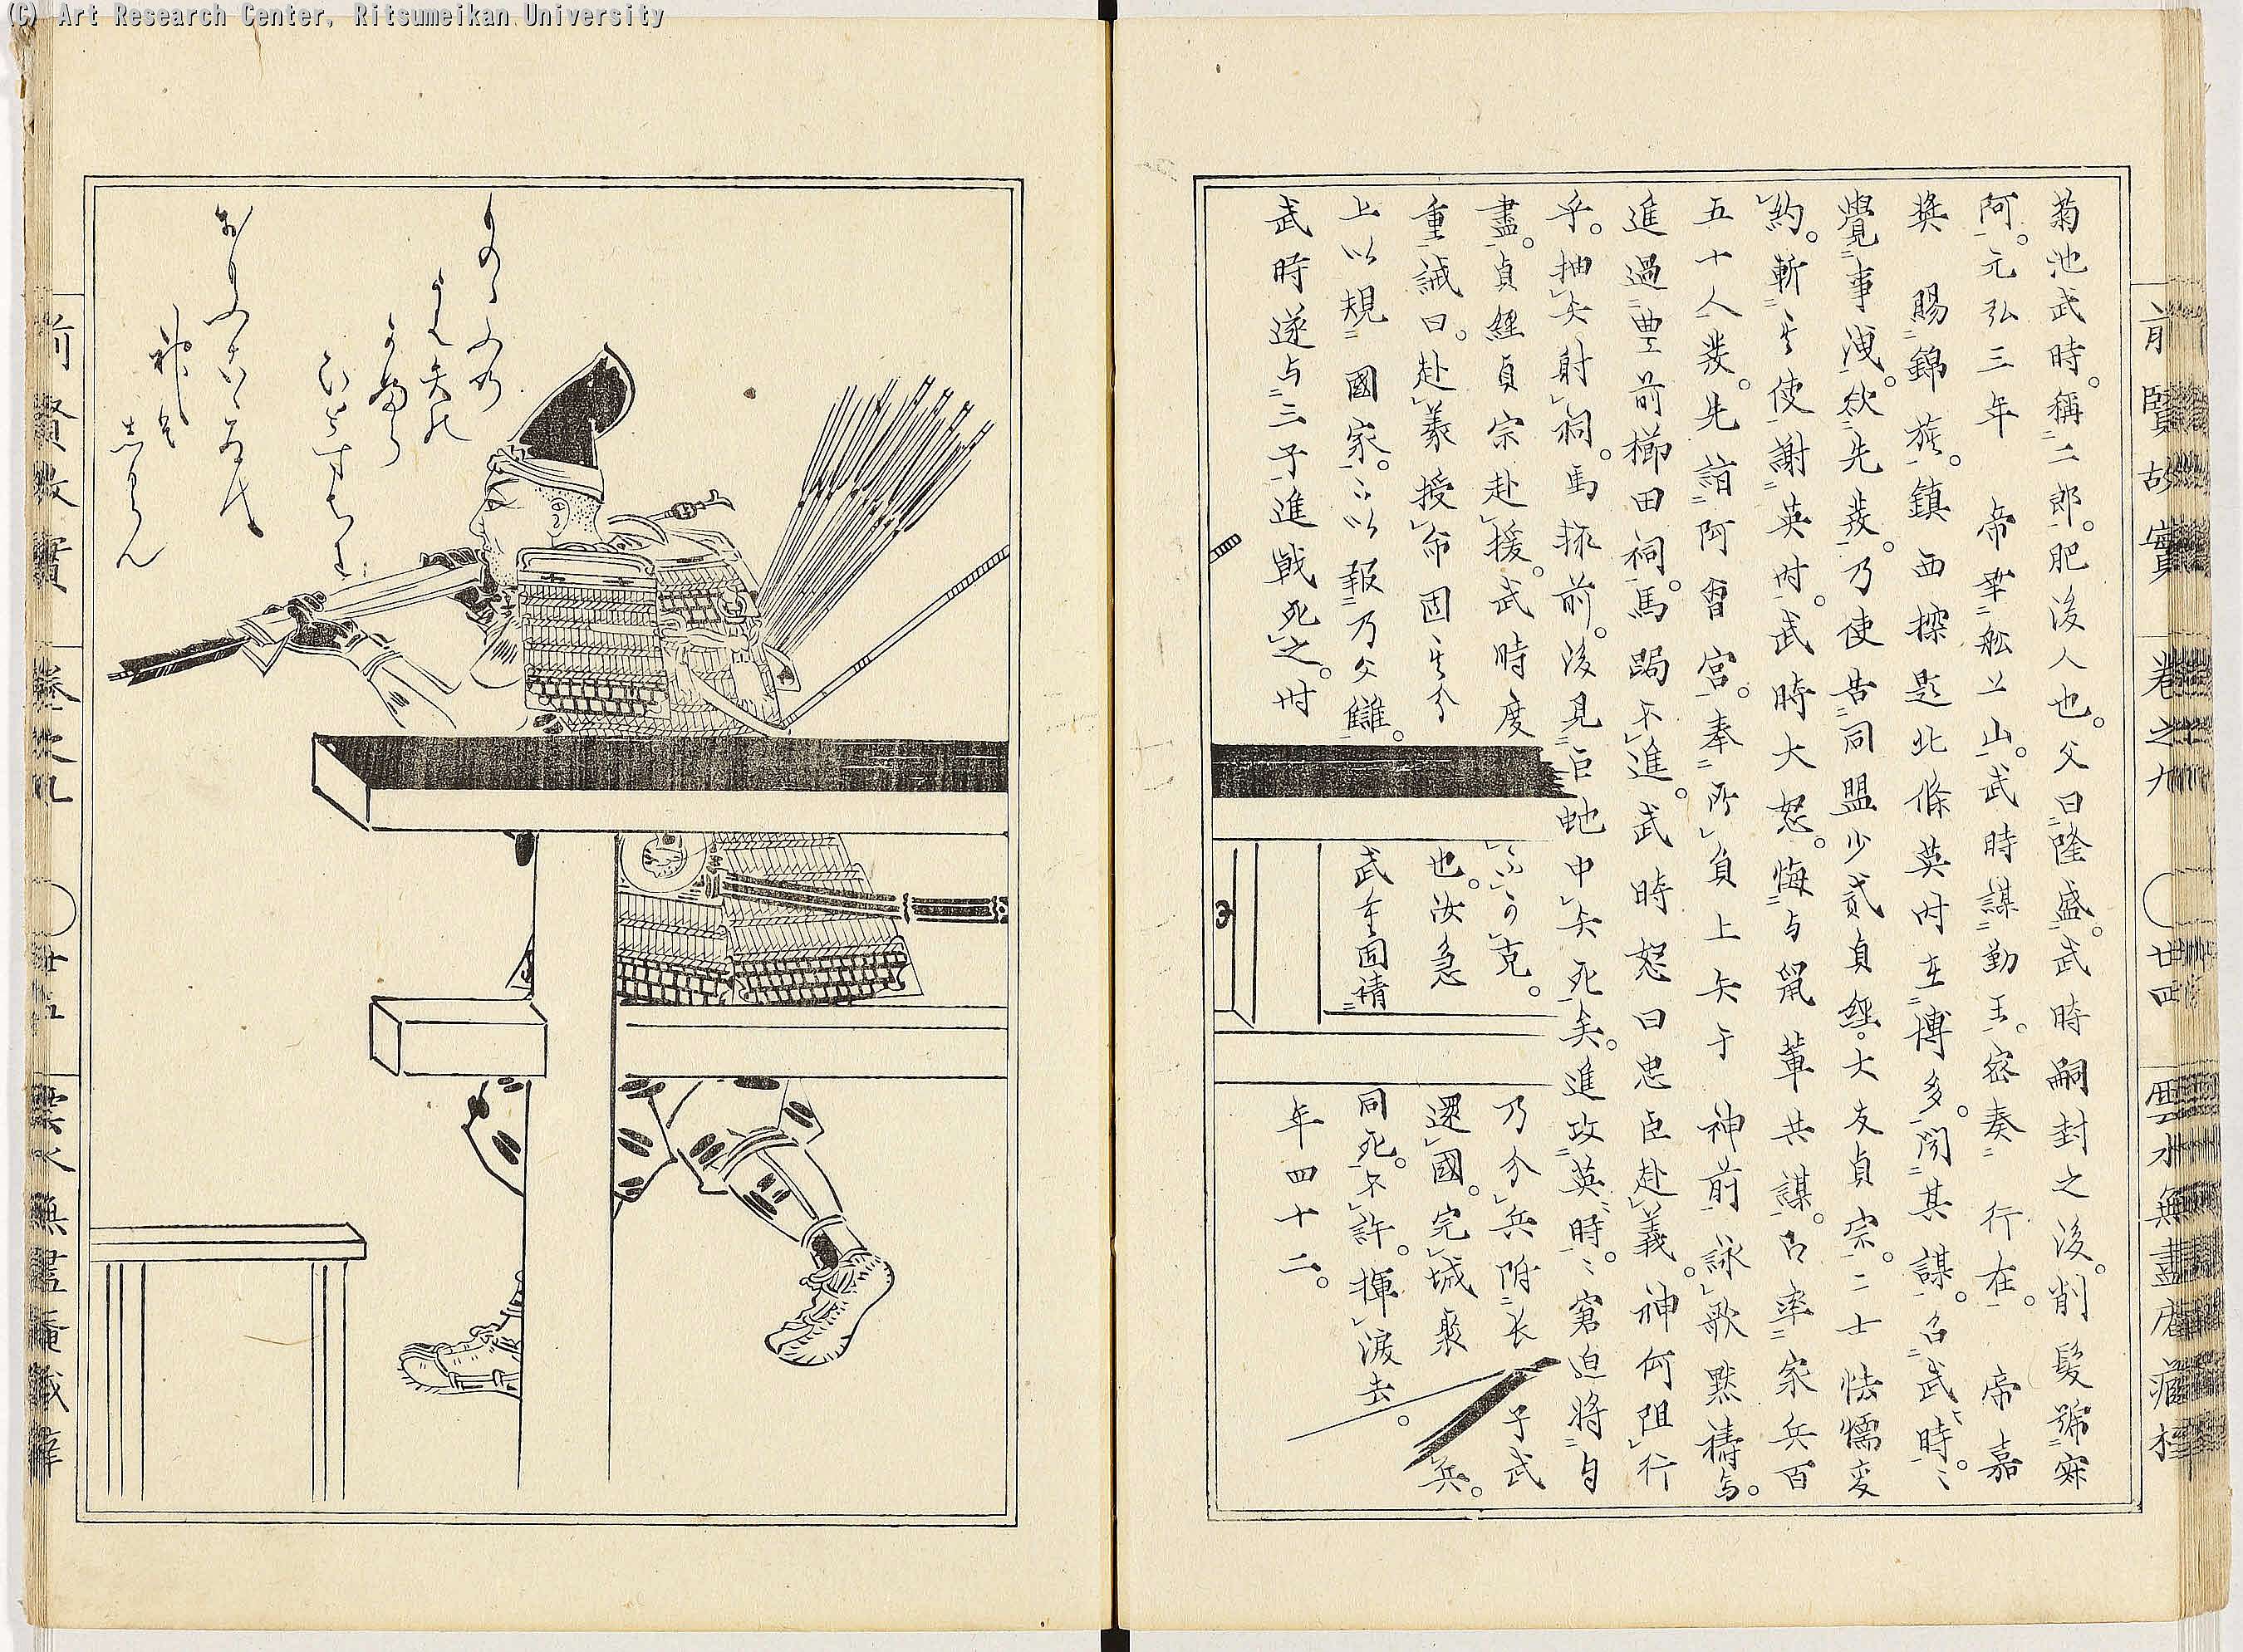 (C) Art Research Center, Ritsumeikan University
前賢故實 卷之九 廿四 雲水無盡庵藏梓
菊池武時。稱二郎。肥後人也。父曰隆盛。武時嗣封之後。削髮號寂
阿。元弘三年 帝幸舩上山。武時謀勤王。密奏 行在。 帝嘉
奨 賜錦旌。鎮西探題北條英时在博多。聞其謀。召武時。〻
覺事洩。欲先發。乃使告同盟少貳貞經。大友貞宗。二士怯懦変
約。斬其使謝英时。武時大怒。悔与鼠輩共謀。即率家兵百
五十人發。先詣阿曽宮。奉所負上矢于 神前詠歌黙禱焉。
進過豊前櫛田祠。馬跼不進。武時怒曰忠臣赴義。神何阻行
乎。抽矢射祠。馬輙前。後見巨虵中矢死矣。進攻英時。〻窘迫將自
盡。貞經貞宗赴援。武時度不可克。乃分兵附長子武
重誡曰。赴義授命固其分也。汝急還國。完城聚兵。
上以規國家。下以報乃父讎。武重固請同死。不許。揮淚去。
武時遂与三子進戦死之。时年四十二。
ものゝふの
うは矢の
かふら
ひとすちに
おもふこゝろは
神そ
しるらん
前賢故實 卷之九 廿五 雲水無盡庵藏梓